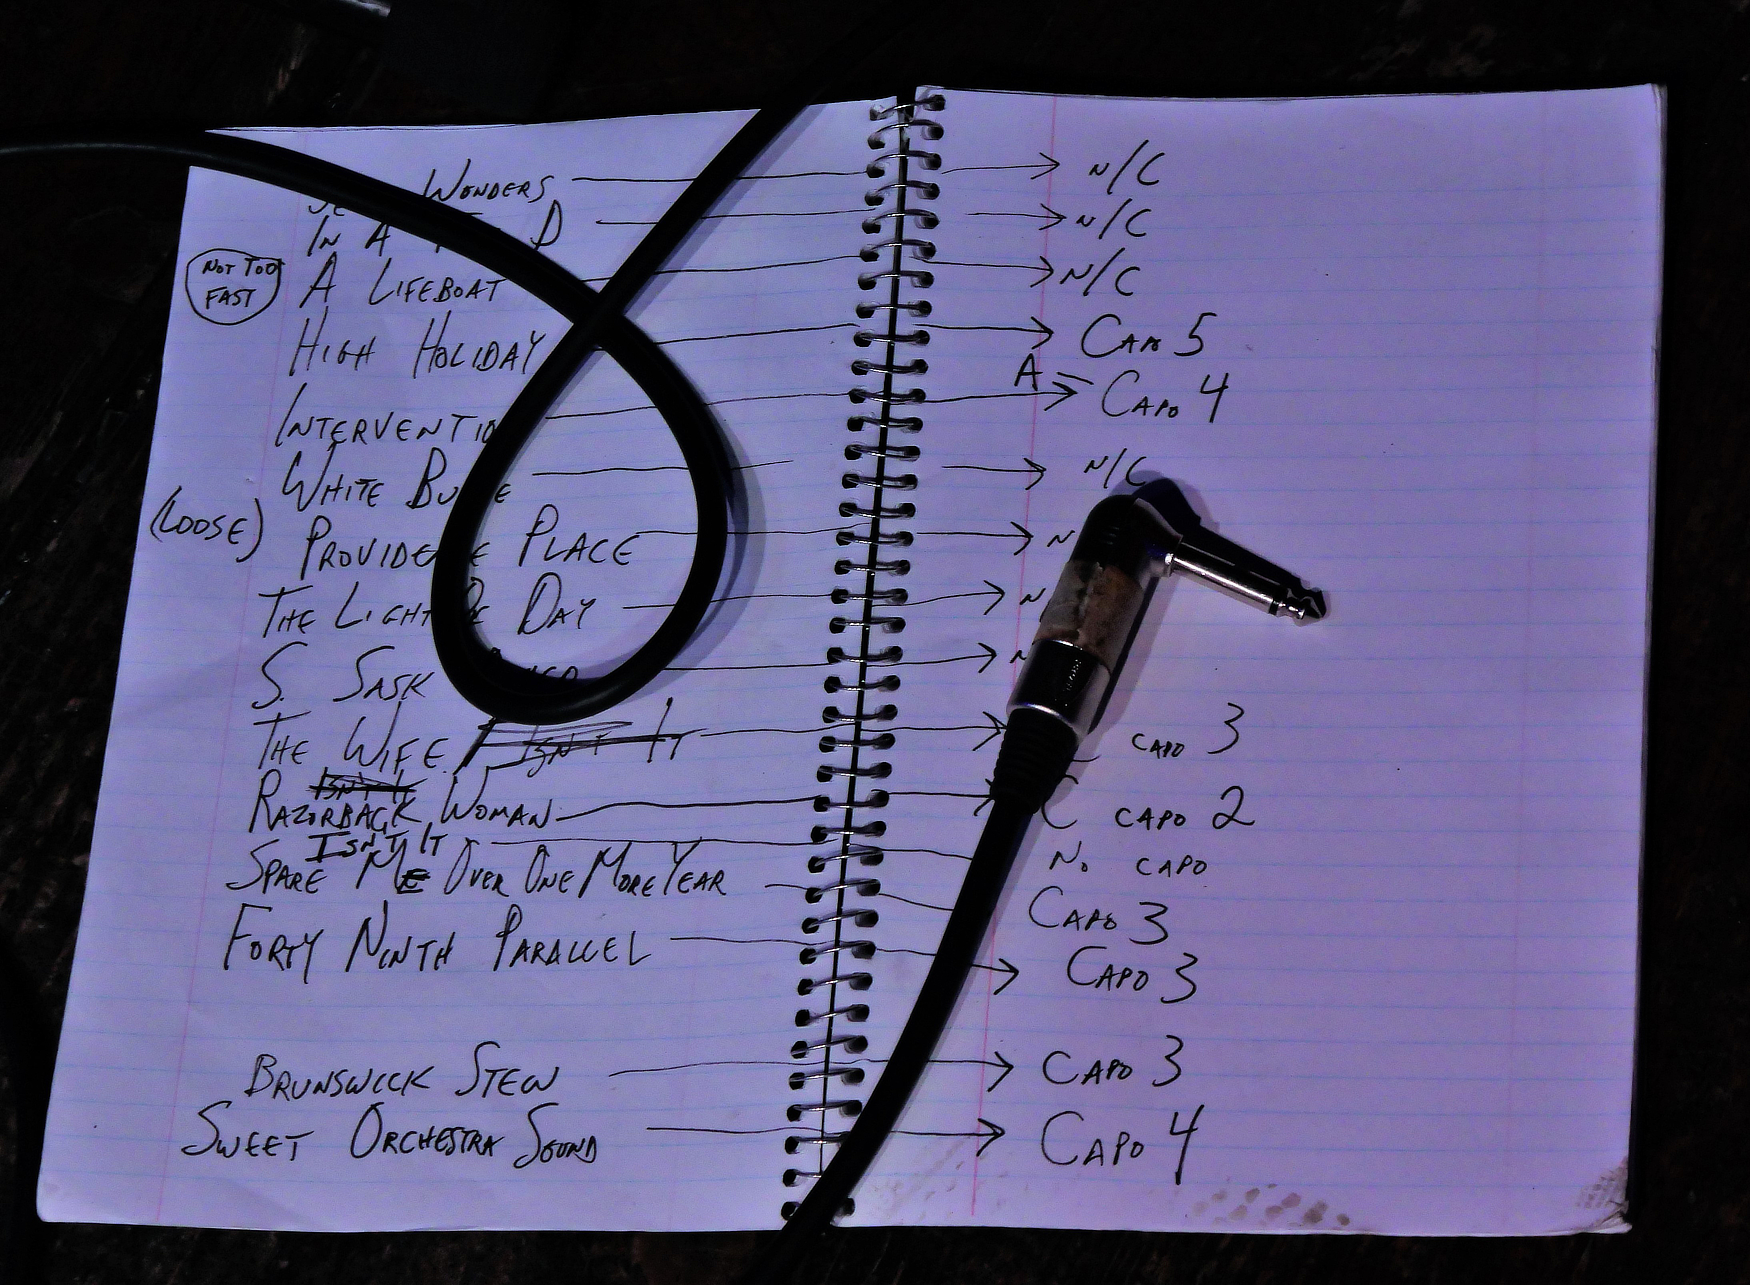 Wonders → N/C
In A D → N/C
(Not Too Fast) A Lifeboat → N/C
High Holiday → Capo 5
Intervention → A - Capo 4
White → N/C
(Loose) Providence Place → N
The Light Of Day → N
S. Sask → N
The Wife / Isn't It → Capo 3
Isn't It
Razorback Woman → C Capo 2
Isn't It No Capo
Spare Me Over One More Year Capo 3
Forty Ninth Parallel → Capo 3
Brunswick Stew → Capo 3
Sweet Orchestra Sound → Capo 4